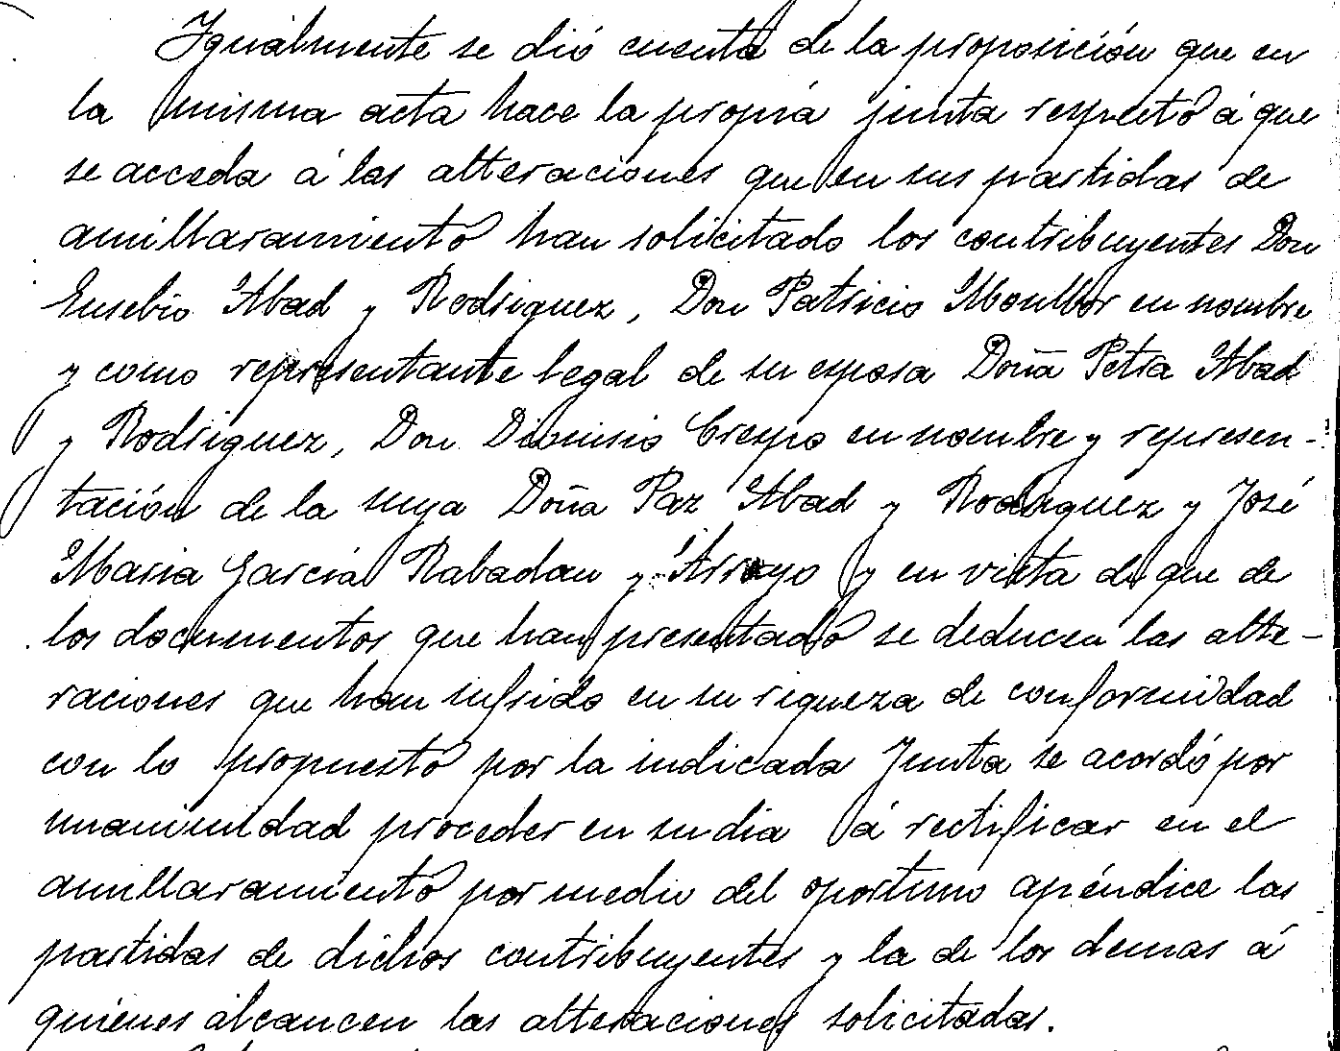 Igualmente se dió cuenta de la proposición que en
la misma acta hace la propia junta respecto á que
se acceda á las alteraciones que en sus partidas de
amillaramiento han solicitado los contribuyentes Don
Eusebio Abad y Rodriguez, Don Patricio Monllor en nombre
y como representante legal de su esposa Doña Petra Abad
y Rodriguez, Don Dionisio Crespo en nombre y represen-
tación de la suya Doña Paz Abad y Rodriguez y José
Maria García Rabadan y Arroyo y en vista de que de
los documentos que han presentado se deducen las alte-
raciones que han sufrido en su riqueza de conformidad
con lo propuesto por la indicada Junta se acordó por
unanimidad proceder en su dia á rectificar en el
amillaramiento por medio del oportuno apéndice las
partidas de dichos contribuyentes y la de los demas á
quiénes alcancen las alteraciones solicitadas.